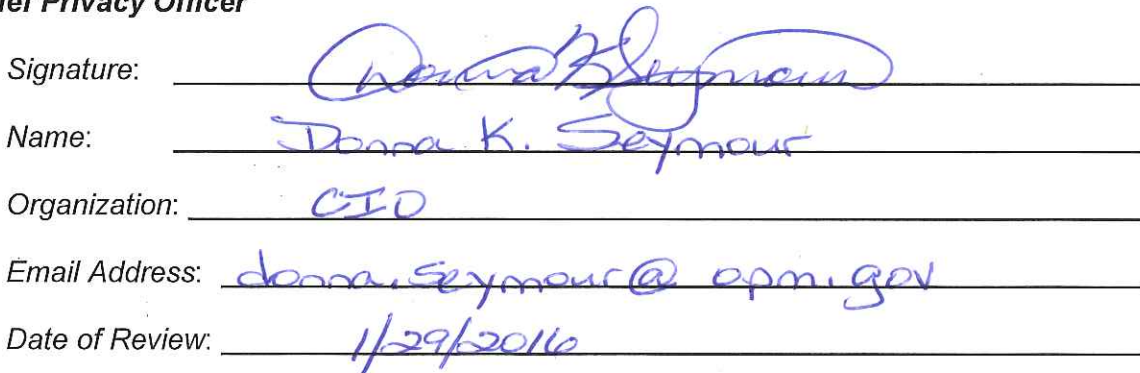 ief Privacy Officer
Signature: Donna K Seymour
Name: Donna K. Seymour
Organization: CIO
Email Address: donna.seymour@opm.gov
Date of Review: 1/29/2016